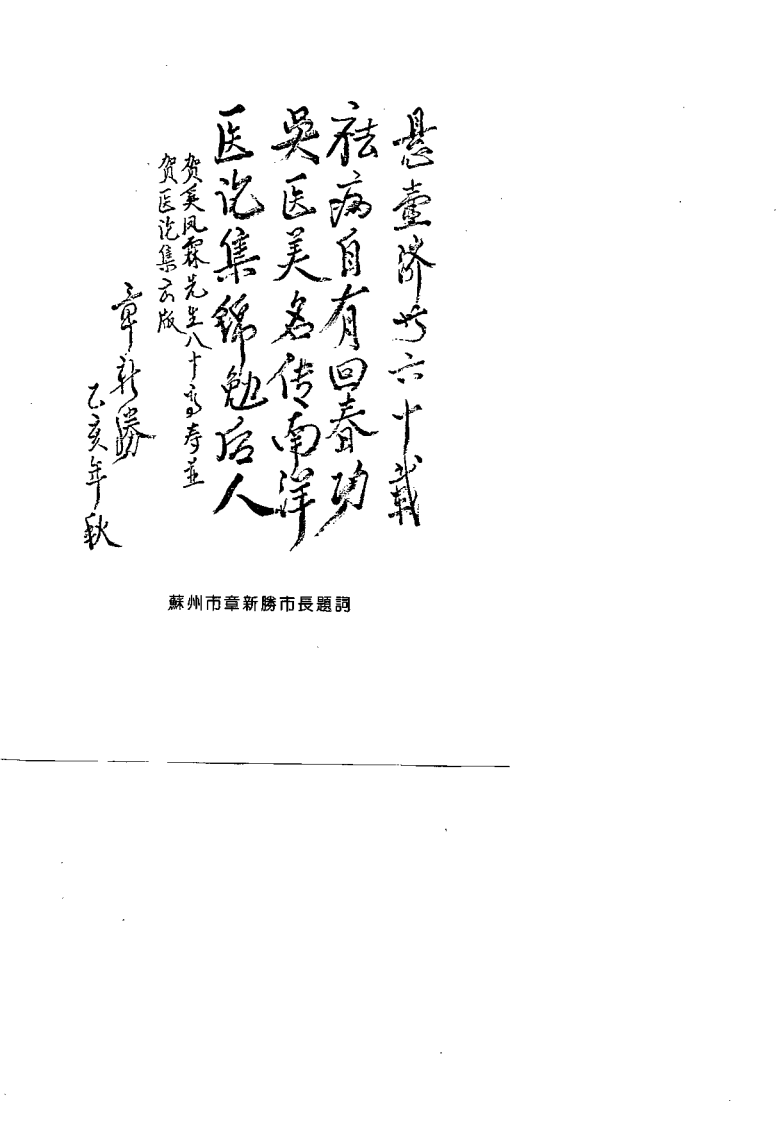 悬壶济世六十载
祛病自有回春功
吴医美名传南洋
医论集锦勉后人
贺奚凤霖先生八十高寿并
贺医论集出版
章新胜
乙亥年秋
蘇州市章新勝市長題詞